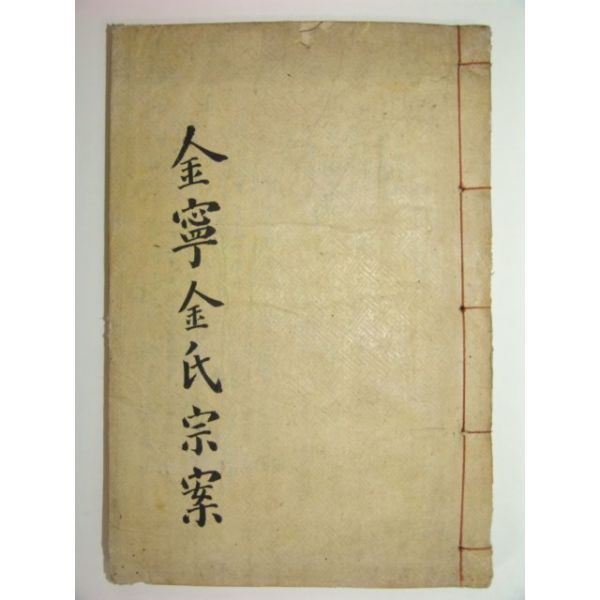 金寧金氏宗案